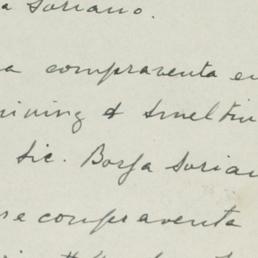 a Soriano.
a compraventa en
ining & Smeltin
Lic. Borja Sorian
re compraventa